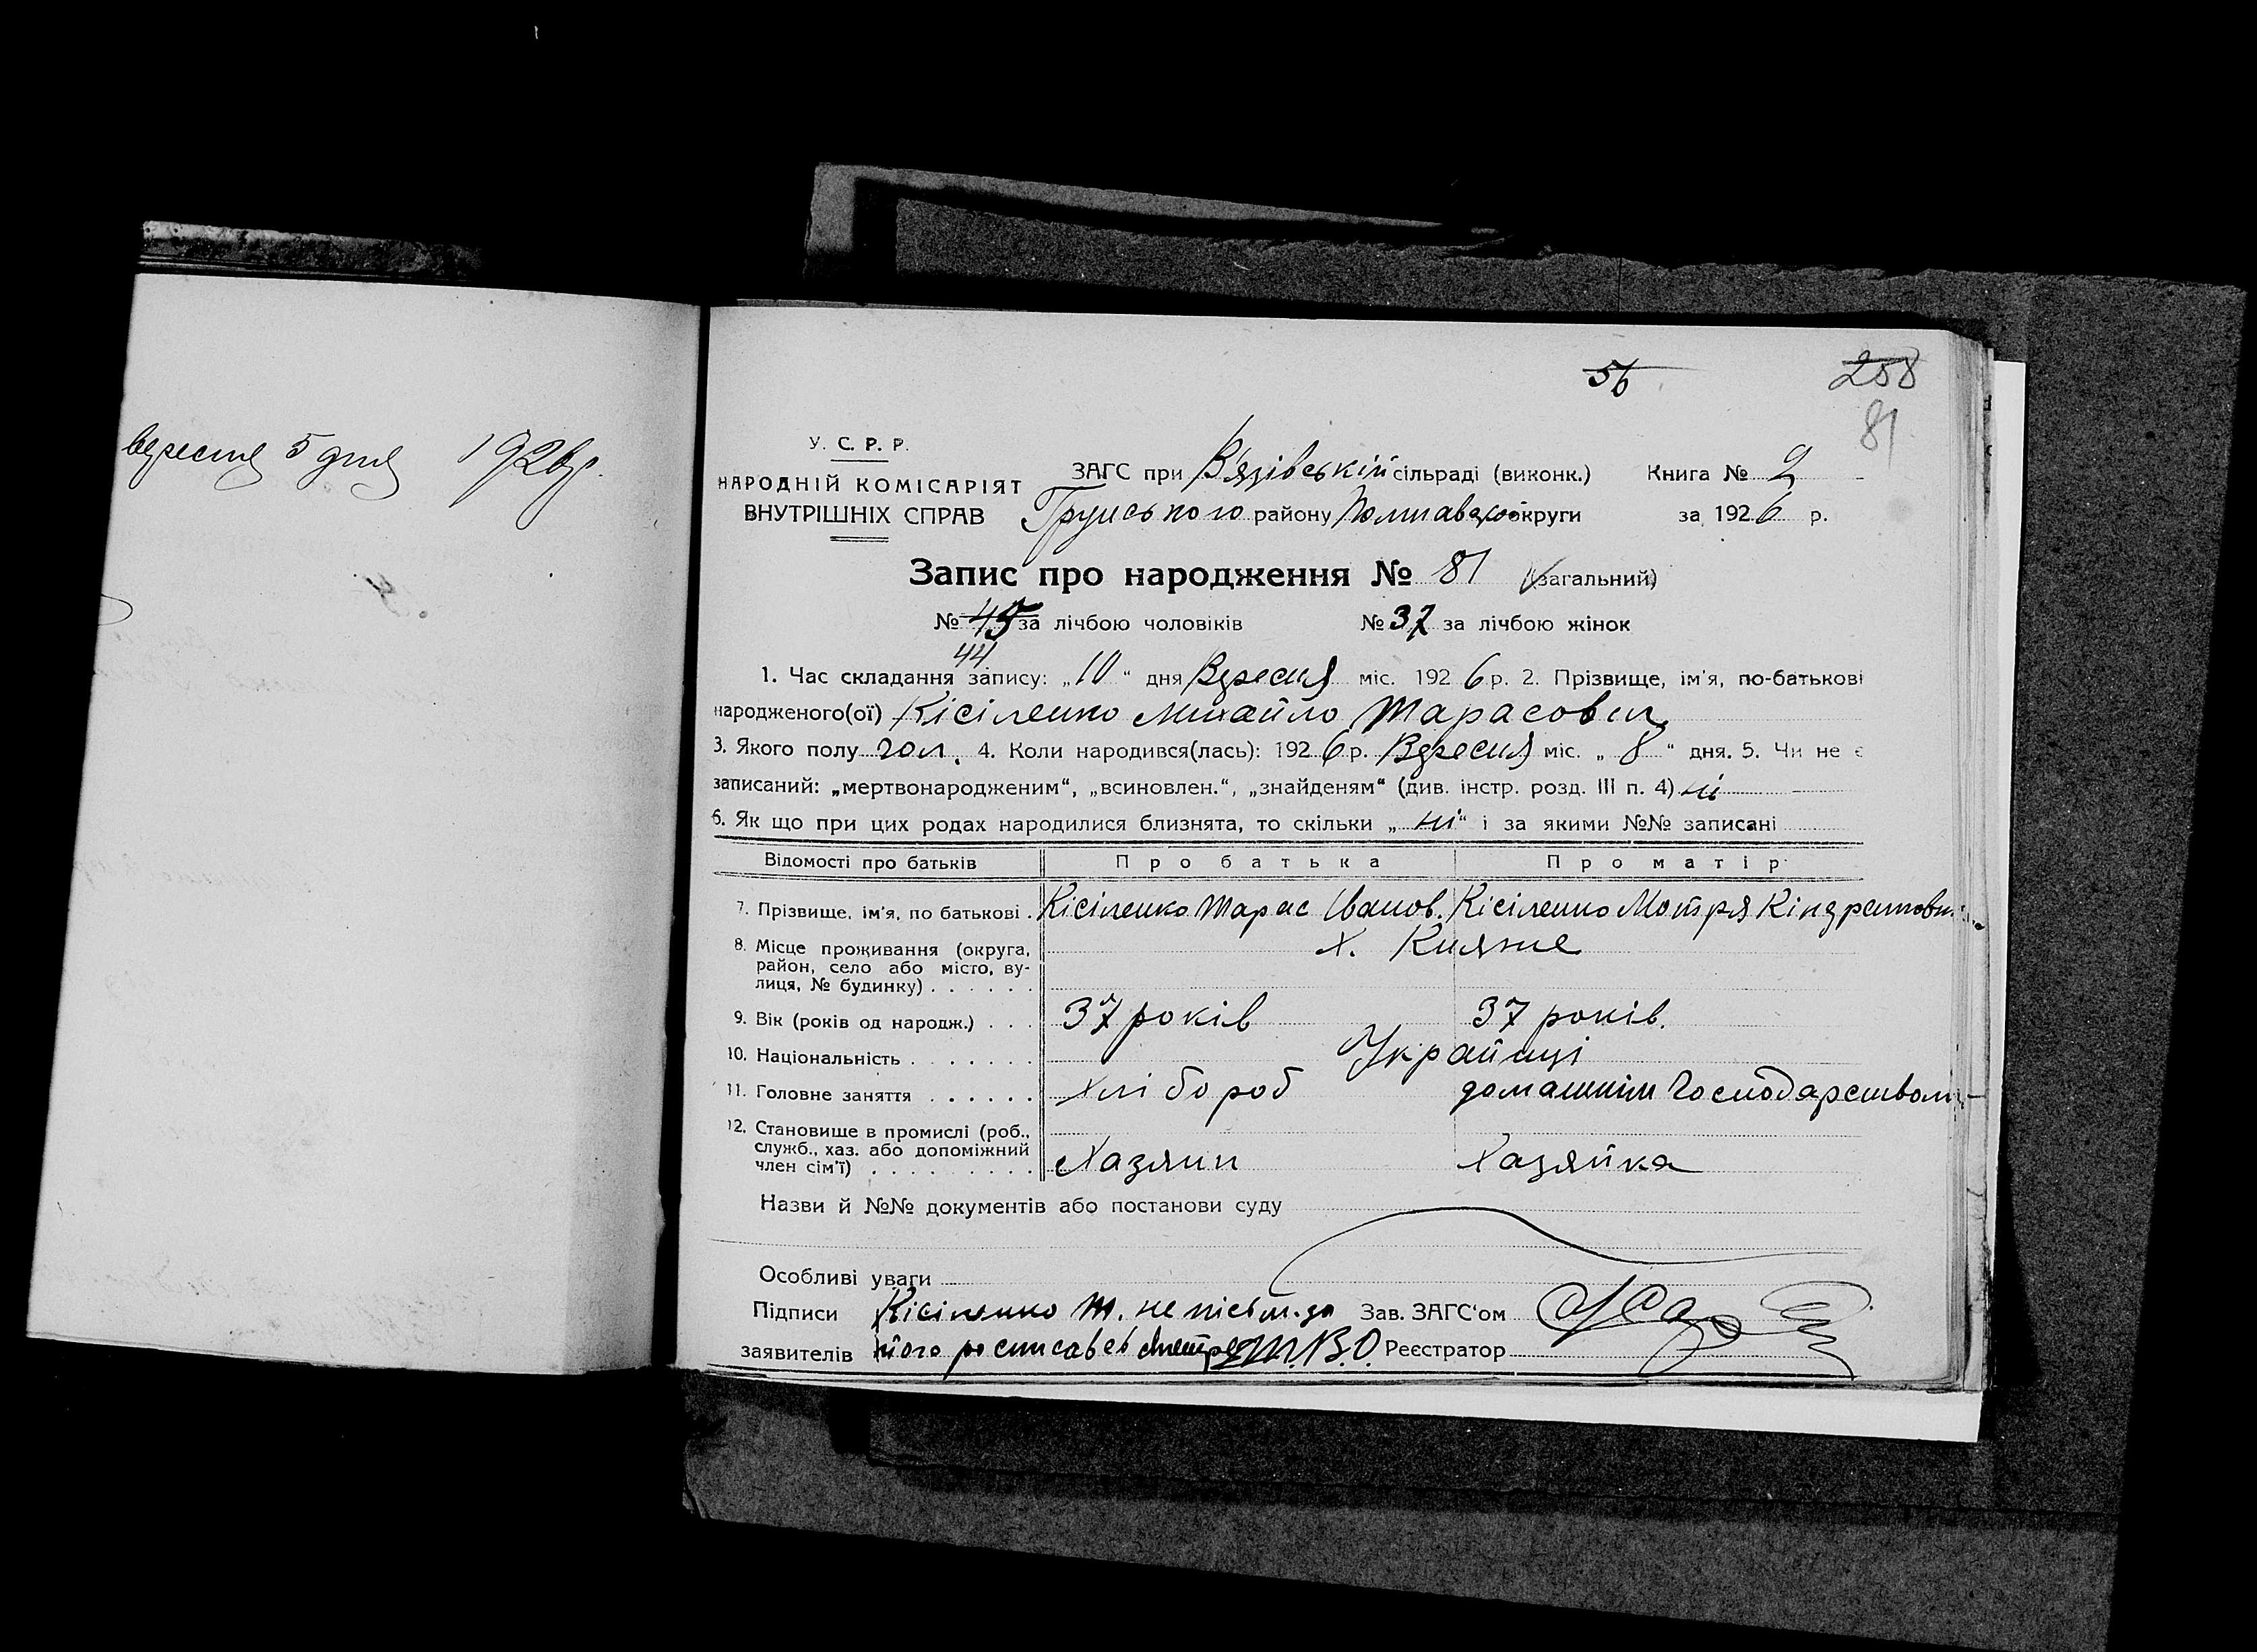 56
258
81
вересня 5 дня 1926 р.
У. С. Р. Р.
НАРОДНІЙ КОМІСАРІЯТ
ВНУТРІШНІХ СПРАВ
ЗАГС при В'язівській сільраді (виконк.) Книга № 2
Грунського району Полтавської округи за 1926 р.
Запис про народження № 81 (загальний)
№ 45 за лічбою чоловіків № 37 за лічбою жінок
44
1. Час складання запису: „10“ дня Вересня міс. 1926 р. 2. Прізвище, ім'я, по-батькові
народженого(ої) Кісіленко Михайло Тарасович
3. Якого полу чол. 4. Коли народився(лась): 1926 р. Вересня міс. „8“ дня. 5. Чи не є
записаний: „мертвонародженим“, „всиновлен.“, „знайденям“ (див. інстр. розд. III п. 4) ні
6. Як що при цих родах народилися близнята, то скільки „ні“ і за якими №№ записані
Відомості про батьків Про батька Про матір
7. Прізвище, ім'я, по батькові . Кісіленко Тарас Іванов. Кісіленко Мотря Кіндратовна
8. Місце проживання (округа, х. Княже
район, село або місто, ву-
лиця, № будинку) . . . . . .
9. Вік (років од народж.) . . . 37 років 37 років.
10. Національність . . . . . . . Українці
11. Головне заняття . . . . . . Хлібороб домашнім господарством
12. Становище в промислі (роб.,
служб., хаз. або допоміжний
член сім'ї) . . . . . . . . . Хазяин Хазяйка
Назви й №№ документів або постанови суду
Особливі уваги
Підписи Кісіленко Т. не письм. за Зав. ЗАГС'ом
заявителів його росписавсь В.О. Реєстратор